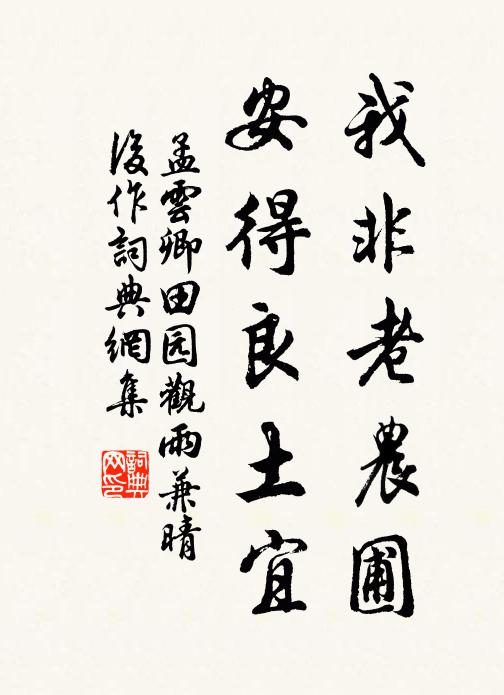 我非老農圃
安得良土宜
孟雲卿田园觀雨兼晴
後作詞典網集
詞典
网印